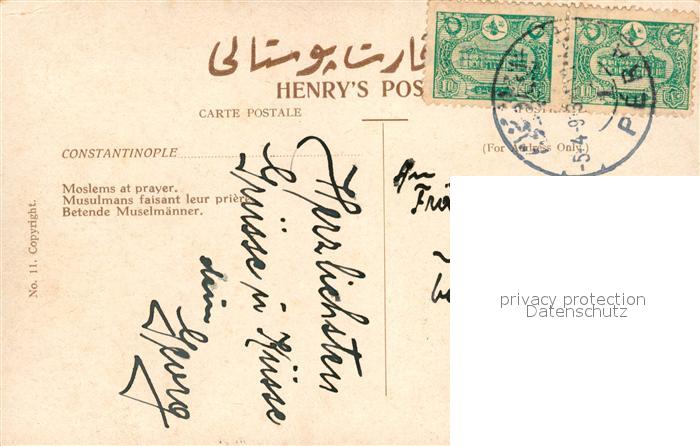 قارت پوستالی
HENRY'S POS
CARTE POSTALE
CONSTANTINOPLE
(For Address Only.)
Moslems at prayer.
Musulmans faisant leur prière
Betende Muselmänner.
No. 11. Copyright.
Herzlichsten
Grüsse u Küsse
dein
Georg
An
Frä
10
10
PERA
5-4-9
privacy protection
Datenschutz